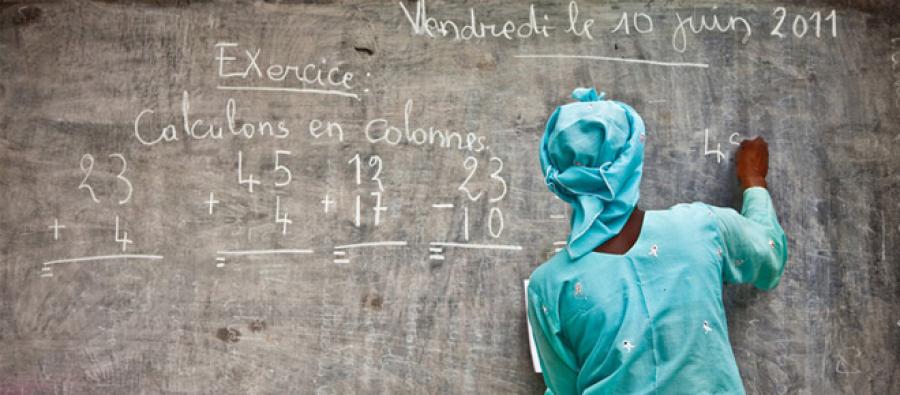 Vendredi le 10 juin 2011
Exercice :
Calculons en colonnes.
23 45 12 23
+ 4 + 4 + 17 - 10 -
= = = = =
4